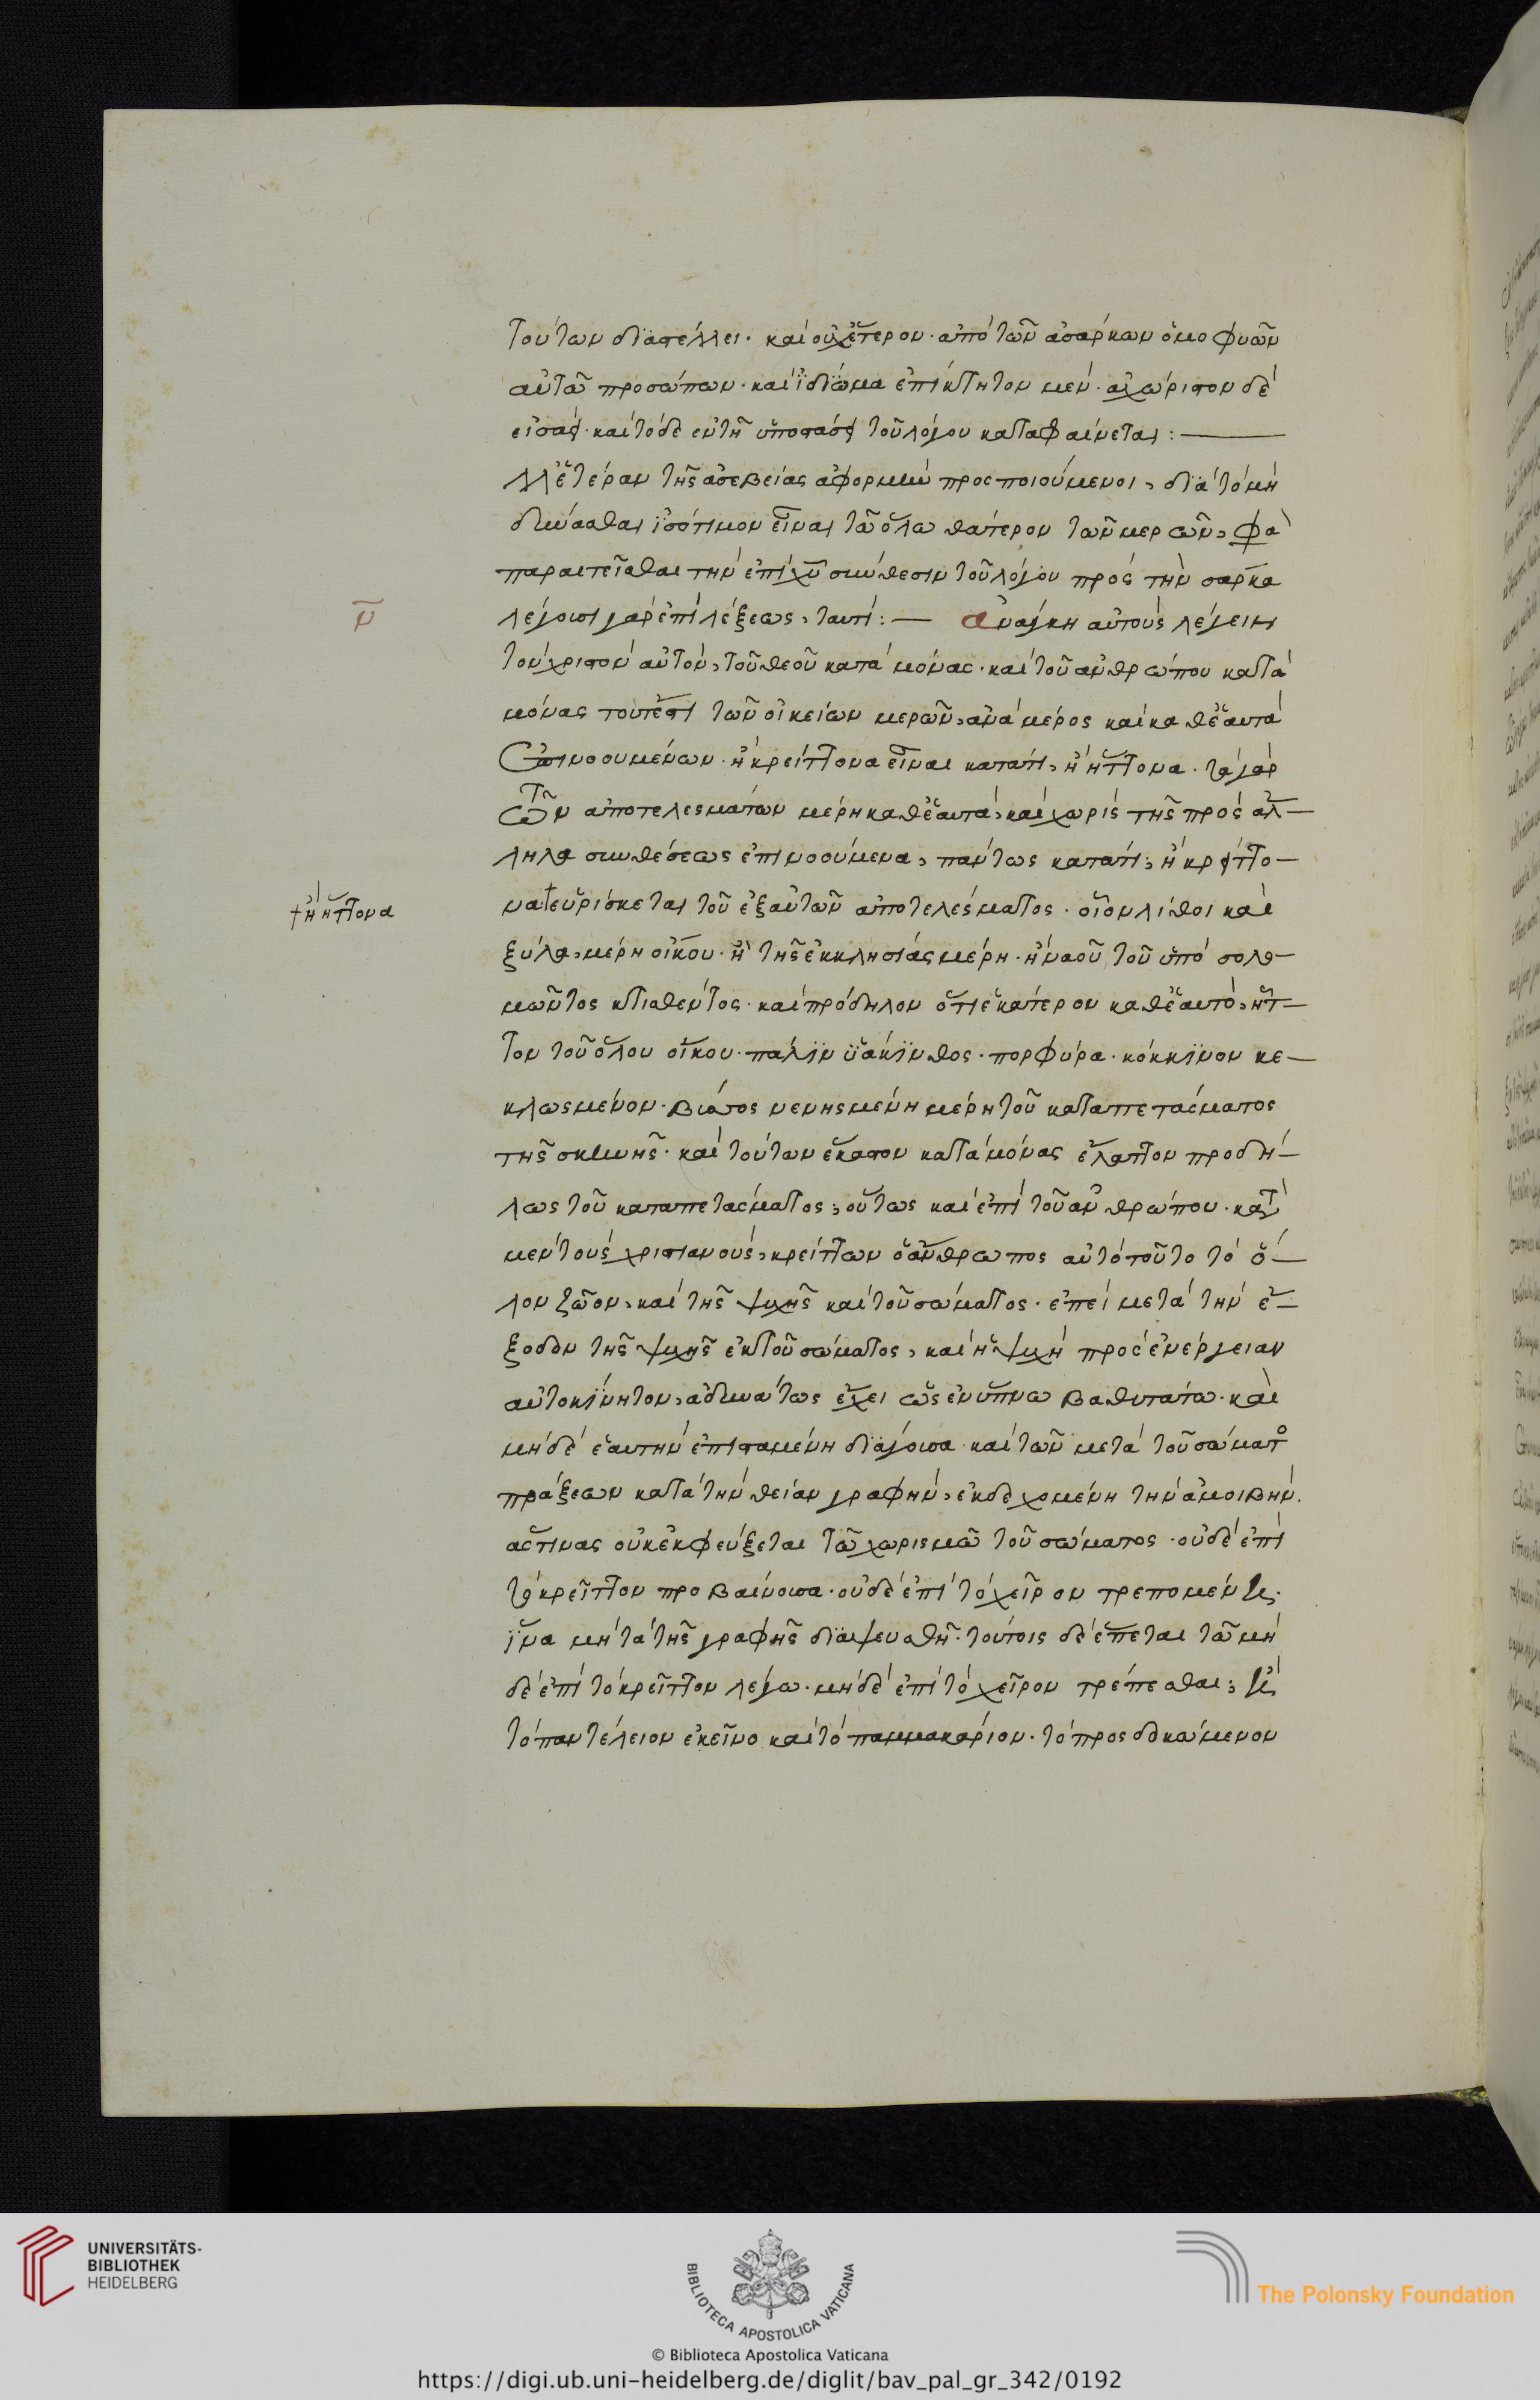 τούτων διαστέλλει· καὶ οὐχ ἕτερον· ἀπὸ τῶν ἀσάρκων ὁμοφυῶν
αὐτῶ προσώπων· καὶ ἰδίωμα ἐπίκτητον μὲν· ἀχώριστον δὲ
εἰσαεὶ· καὶ τόδε ἐν τῆ ὑποστάσει τοῦ λόγου καταφαίνεται:—
λλ' ἑτέραν τῆς ἀσεβείας ἀφορμὴν προσποιούμενοι, διὰ τὸ μὴ
δύνασθαι ἰσότιμον εἶναι τῶ ὅλω θάτερον τῶν μερῶν, φα
παραιτεῖσθαι τὴν ἐπὶ χ̅υ̅ σύνθεσιν τοῦ λόγου πρὸς τὴν σάρκα
λέγουσι γὰρ ἐπὶ λέξεως, ταυτί:— Ἀνάγκη αὐτοὺς λέγειν
ν̅
τὸν χριστὸν αὐτὸν, τοῦ θεοῦ κατὰ μόνας· καὶ τοῦ ἀνθρώπου κατὰ
μόνας τουτέστι τῶν οἰκείων μερῶν, ἀνὰ μέρος καὶ καθ' ἑαυτὰ
ἐπινοουμένων· ἢ κρείττονα εἶναι κατά τι, ἢ ἥττονα· τὰ γὰρ
τῶν ἀποτελεσμάτων μέρη καθ' ἑαυτὰ, καὶ χωρὶς τῆς πρὸς ἄλ—
ληλα συνθέσεως ἐπινοούμενα, πάντως κατά τι, ἢ κρείττο—
να † εὑρίσκεται τοῦ ἐξ αὐτῶν ἀποτελέσματος· οἷον λίθοι καὶ
† ἢ ἥττονα
ξύλα, μέρη οἴκου· ἢ τῆς ἐκκλησίας μέρη· ἢ ναοῦ τοῦ ὑπὸ σολο—
μῶντος κτισθέντος· καὶ πρόδηλον ὅτι ἑκάτερον καθ' ἑαυτὸ, ἧτ—
τον τοῦ ὅλου οἴκου· πάλιν ὑάκινθος· πορφύρα· κόκκινον κε—
κλωσμένον· βύσσος νενησμένη μέρη τοῦ καταπετάσματος
τῆς σκηνῆς· καὶ τούτων ἕκαστον κατὰ μόνας ἔλαττον προδή—
λως τοῦ καταπετάσματος, οὕτως καὶ ἐπὶ τοῦ ἀνθρώπου· κατὰ
μὲν τοὺς χριστιανοὺς, κρείττων ὁ ἄνθρωπος αὐτὸ τοῦτο τὸ ὅ—
λον ζῶον, καὶ τῆς ψυχῆς καὶ τοῦ σώματος· ἐπεὶ μετὰ τὴν ἔ—
ξοδον τῆς ψυχῆς ἐκ τοῦ σώματος, καὶ ἡ ψυχὴ πρὸς ἐνέργειαν
αὐτοκίνητον, ἀδυνάτως ἔχει ὡς ἐν ὕπνω βαθυτάτω· καὶ
μὴ δὲ ἑαυτὴν ἐπισταμένη διάγουσα· καὶ τῶν μετὰ τοῦ σώματος
πράξεων κατὰ τὴν θείαν γραφὴν, ἐκδεχομένη τὴν ἀμοιβὴν.
ἅστινας οὐκ ἐκφεύξεται τῶ χωρισμῶ τοῦ σώματος· οὐδὲ ἐπὶ
τὸ κρεῖττον προβαίνουσα· οὐδὲ ἐπὶ τὸ χεῖρον τρεπομένη·
ἵνα μὴ τὰ τῆς γραφῆς διαψευσθῆ· τούτοις δὲ ἕπεται τῶ μὴ
δὲ ἐπὶ τὸ κρεῖττον λέγω· μὴ δὲ ἐπὶ τὸ χεῖρον τρέπεσθαι,
τὸ παντέλειον ἐκεῖνο καὶ τὸ παμμακάριον· τὸ προσδοκώμενον
UNIVERSITÄTS-
BIBLIOTHEK
HEIDELBERG
BIBLIOTECA APOSTOLICA VATICANA
The Polonsky Foundation
© Biblioteca Apostolica Vaticana
https://digi.ub.uni-heidelberg.de/diglit/bav_pal_gr_342/0192